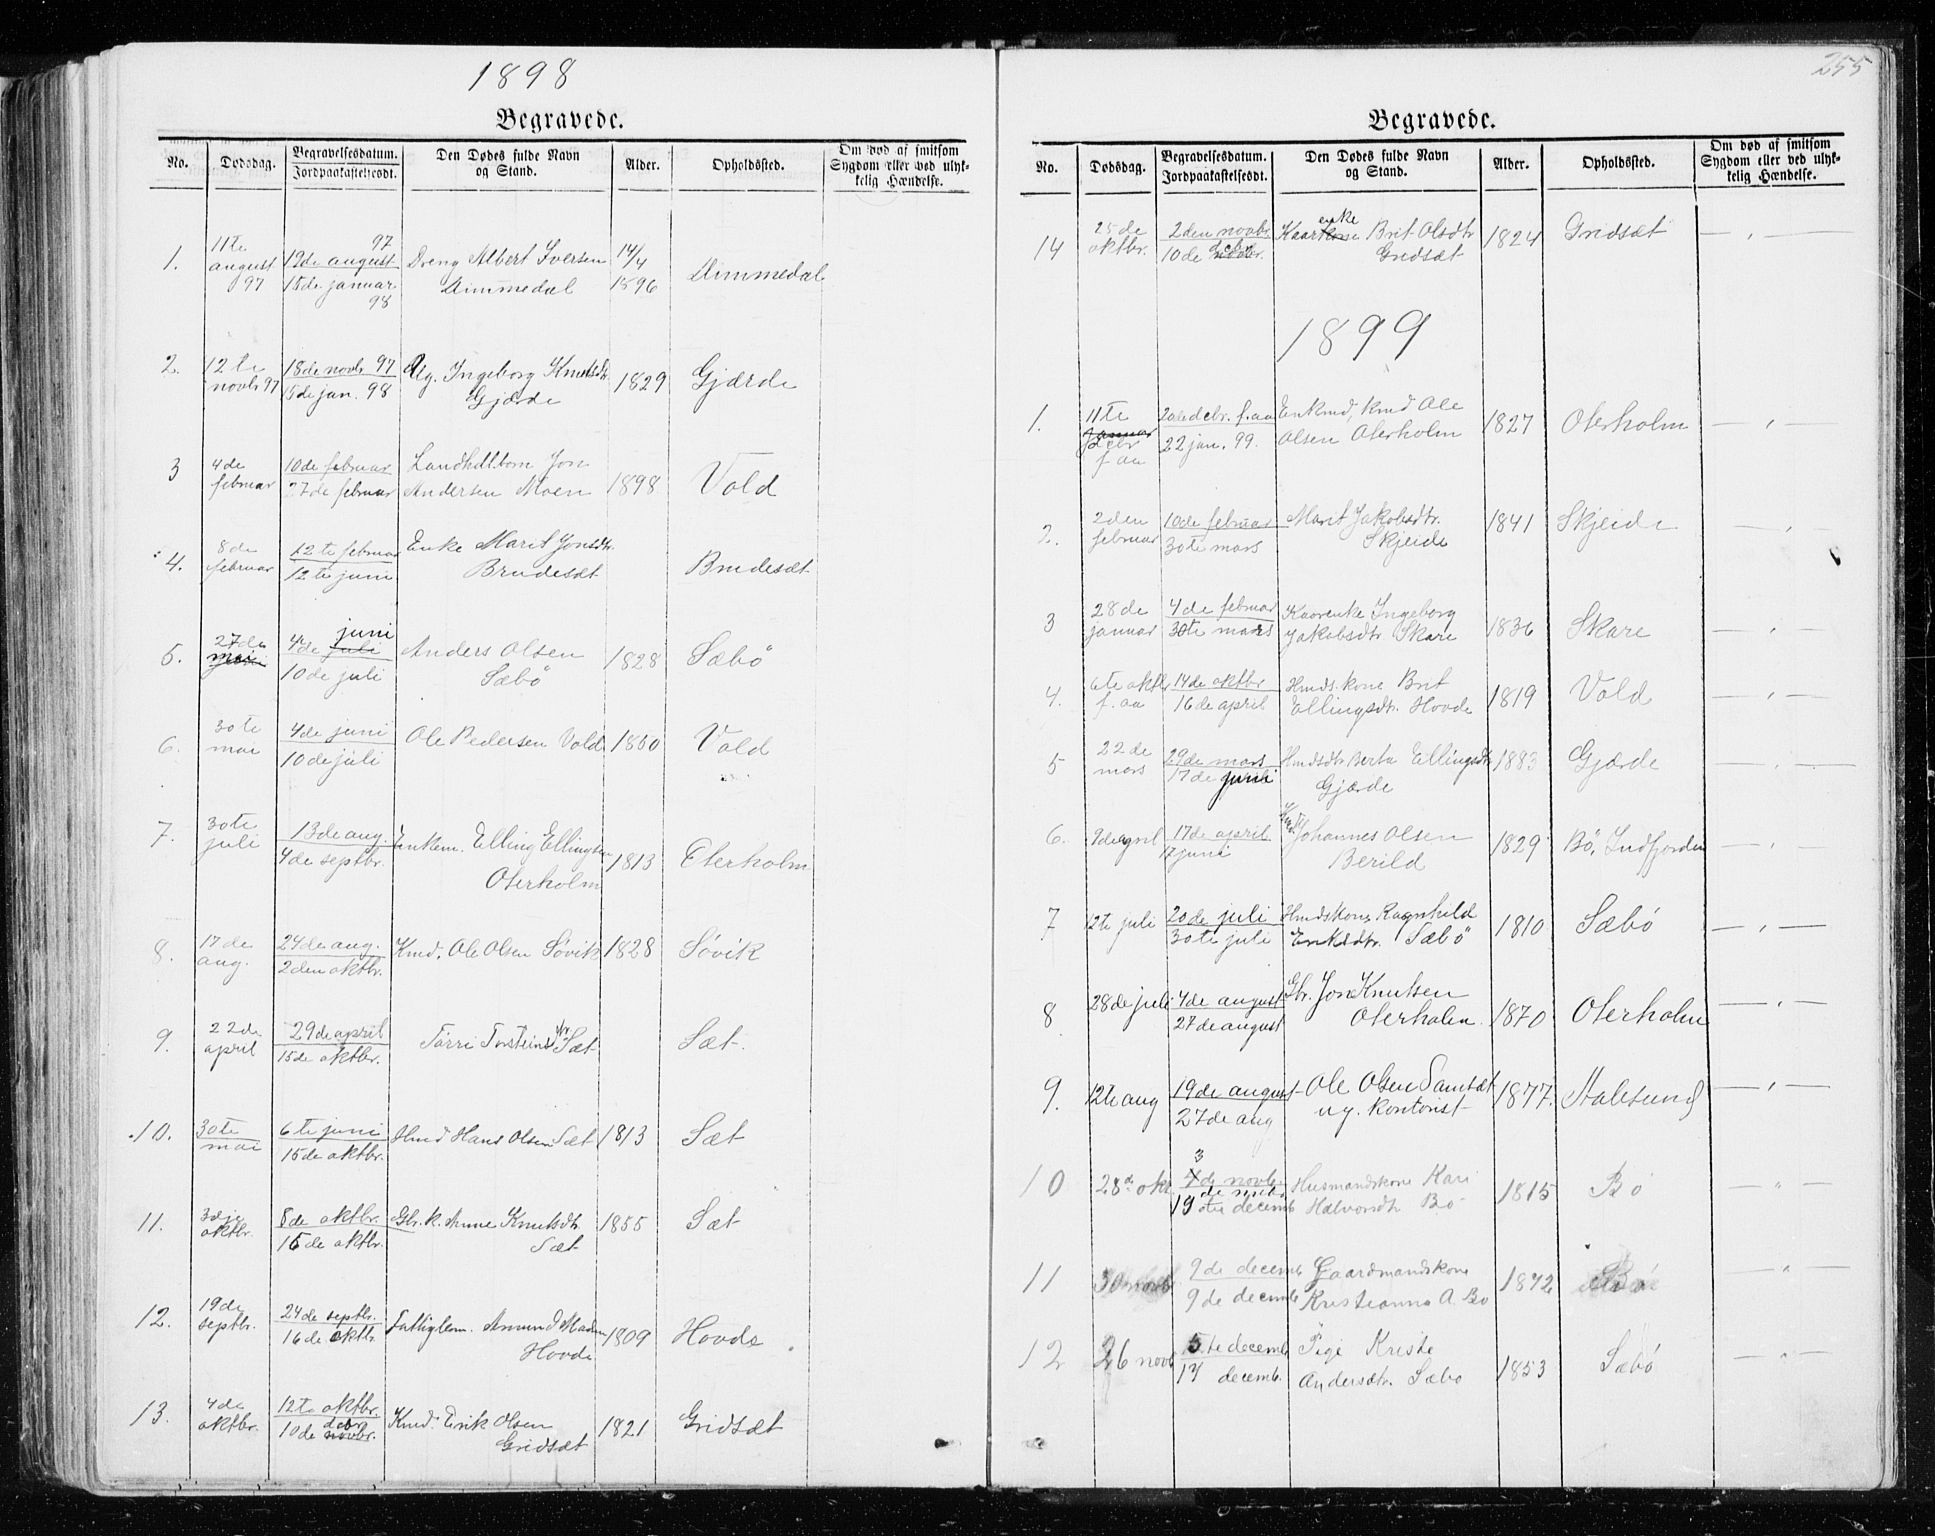 1898
Begravede.
No. Dødsdag. Begravelsesdatum. Jordpaakastelsesdt. Den Dødes fulde Navn og Stand. Alder. Opholdssted. Om død af smitsom Sygdom eller ved ulykkelig Hændelse.
1. 11te august 97 19de august 97 15de januar 98 Dreng Albert Iversen Dimmedal 14/4 1896 Dimmedal
2. 12te novbr 97 18de novbr 97 15de jan. 98 Ug. Ingeborg Knutsdt. Gjærde 1829 Gjærde
3 4de februar 10de februar 27de februar Jon Andersen Moen 1898 Vold
4. 8de februar 12te februar 12te juni Enke Marit Jonsdtr. Brudesæt Brudesæt
5. 27de mai 4de juni 10de juli Anders Olsen Sæbö 1828 Sæbö
6. 30te mai 4de juni 10de juli Ole Pedersen Vold 1850 Vold
7. 30te juli 13de aug. 4de septbr. Enkem. Elling Ellingsen Oterholm 1813 Oterholm
8. 17de aug. 24de aug. 2den oktbr. Kmd. Ole Olsen Søvik 1828 Søvik
9. 22de april 29de april 15de oktbr. Torri Torsteinsdtr. Sæt Sæt.
10. 30te mai 6te juni 15de oktbr. Hmd Hans Olsen Sæt 1813 Sæt
11. 3dje oktbr. 8de oktbr. 15de oktbr. Gbr.k. Anne Knutsdt. Sæt 1855 Sæt
12. 19de septbr. 24de septbr. 16de oktbr. Fattiglem. Amund Madsen Hovde 1809 Hovde
13. 4de oktbr. 12te oktbr. 10de debr novbr. Kmd. Erik Olsen Gridsæt 1821 Gridsæt
255
Begravede.
No. Dødsdag. Begravelsesdatum. Jordpaakastelsesdt. Den Dødes fulde Navn og Stand. Alder. Opholdssted. Om død af smitsom Sygdom eller ved ulykkelig Hændelse.
14 25de oktbr. 2den novbr. 10de debr. Kaarenke Brit Olsdtr Gridsæt 1824 Gridsæt — " —
1899
1. 11te januar debr f. aa 20de debr. f. aa 22 jan. 99. Enkmd, kmd Ole Olsen Oterholm 1827 Oterholm — " —
2. 2den februar 10de februar 30te mars Marit Jakobsdtr. Skjeide 1841 Skjeide — " —
3 28de januar 4de februar 30te mars Kaarenke Ingeborg Jakobsdtr Skare 1836 Skare — " —
4. 6te oktbr f. aa 14de oktbr 16de april Hmds.kone Brit Ellingsdt. Hovde 1819 Vold — " —
5 22de mars 29de mars 17de juni Hmdsdtr Berta Ellingsdtr Gjærde 1883 Gjærde — " —
6. 9de april 17de april 17 juni Hmd Johannes Olsen Berild 1829 Bö, Indfjorden — " —
7 12te juli 20de juli 30te juli Hmdskone Ragnhild Eriksdtr. Sæbö 1810 Sæbö — " —
8 28de juli 4de august 27de august Gbr. Jon Knutsen Oterholm 1870 Oterholm — " —
9. 12te aug 19de august 27de aug Ole Olsen Samsæt ug. kontorist 1877. Aalesund — " —
10 28de okt 3 4de novbr. 19 decemb Husmandskone Kari Halvorsdt Bö 1815 Bö — " —
11 30 novbr 9de decemb 9de decemb Gaardmandskone Kristianna A. Bö 1872 Bö — " —
12 26 novb 5te decemb 17 decemb. Pige Kristi Andersdtr. Sæbö 1853 Sæbö — " —